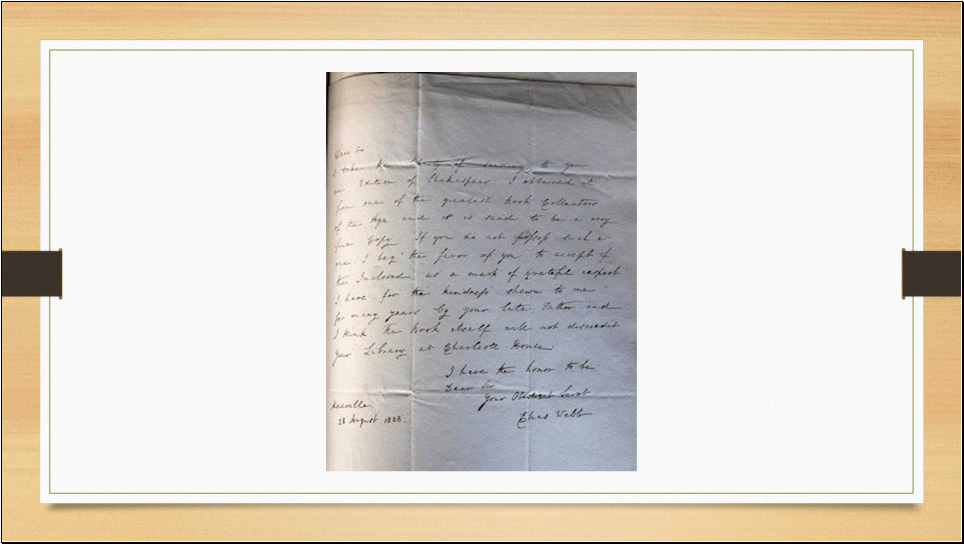 Dear Sir
I take the liberty of sending to you
an Edition of Shakespear. I obtained it
from one of the greatest Book Collectors
of the Age and it is said to be a very
fine Copy. If you do not possess such a
one I beg the favor of you to accept of
the Inclosed as a mark of grateful respect
I have for the kindness shewn to me
for many years by your late Father and
I think the Book itself will not discredit
your Library at Charlecote House.
I have the honor to be
Dear Sir
Your Obedient Servt
Webb
28 August